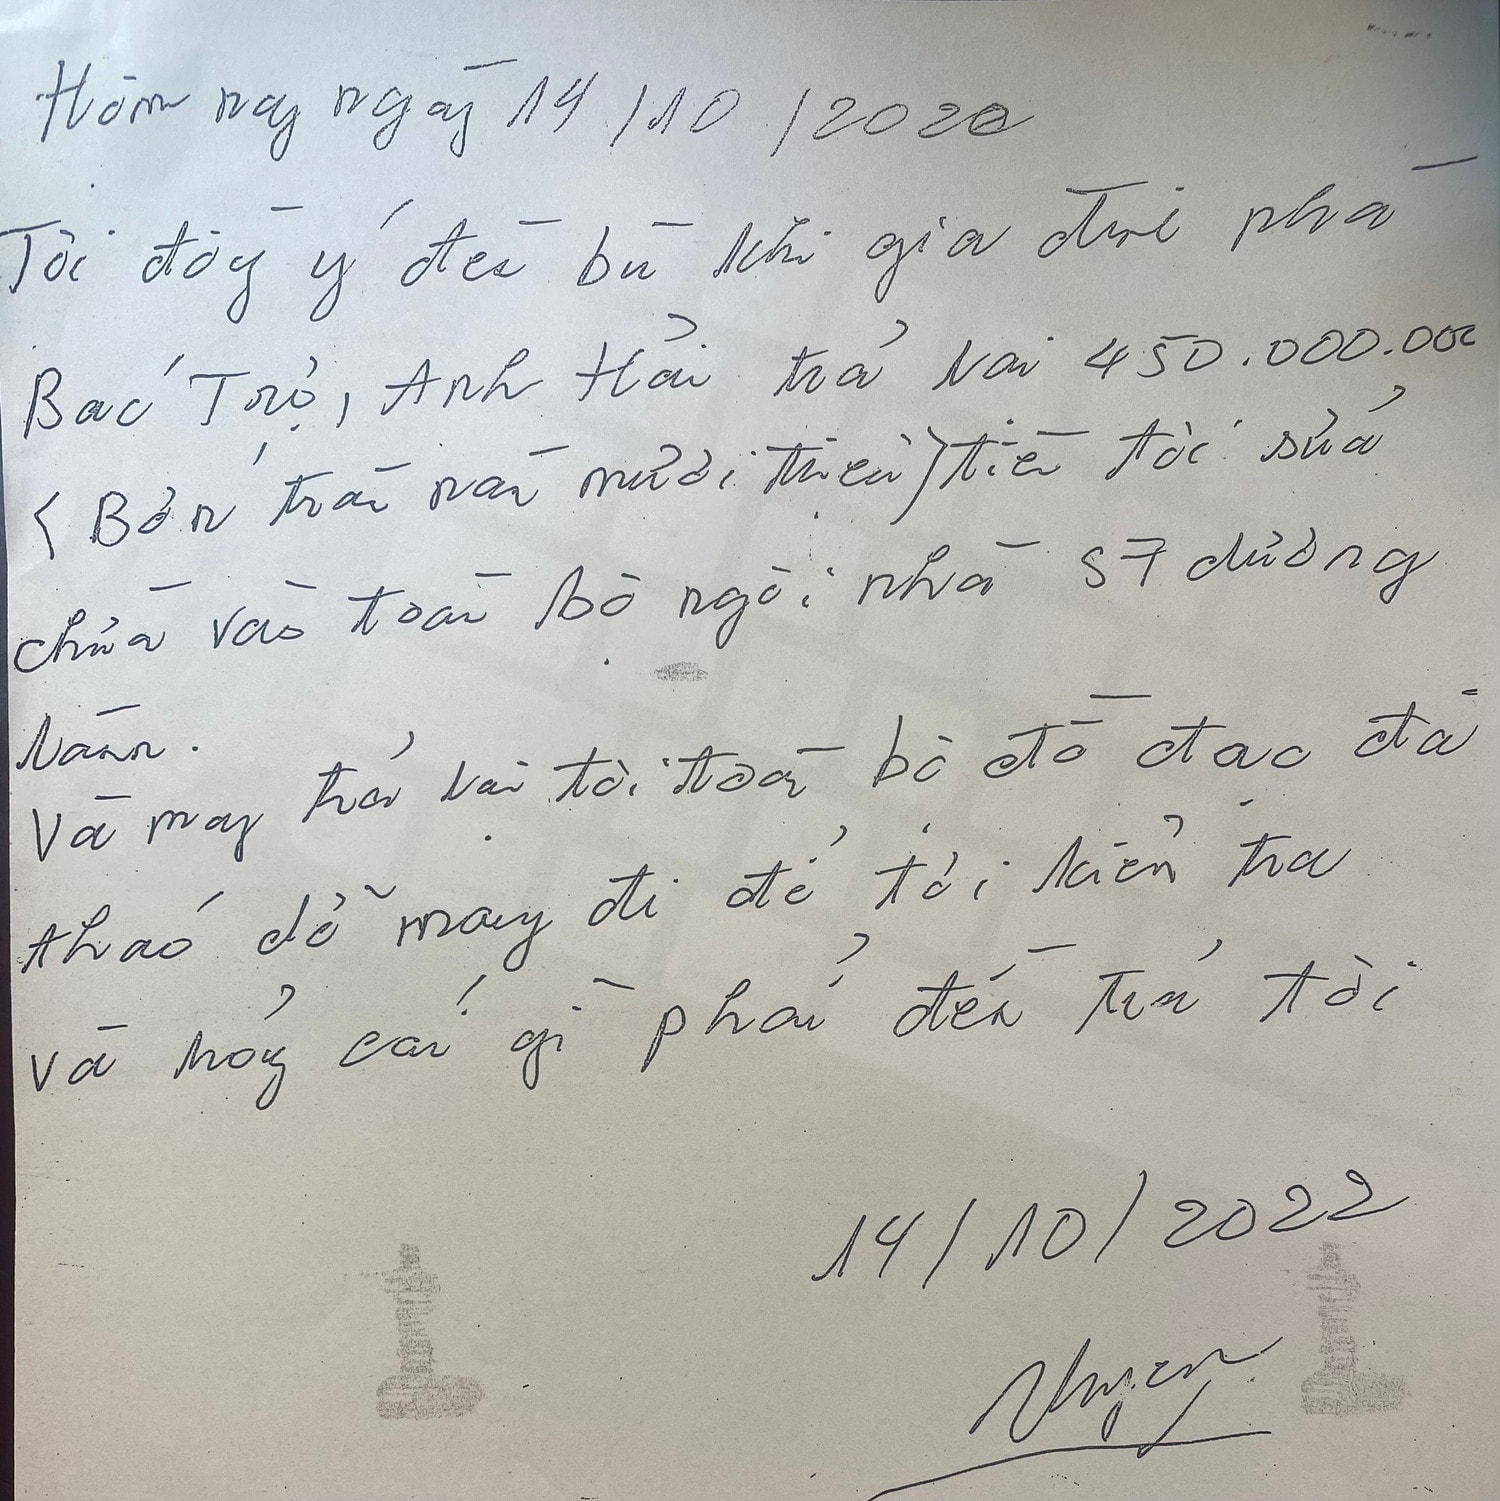 Hôm nay ngày 14/10/2022
Tôi đồng ý đền bù khi gia đình phá
Bác Trợ, Anh Hải trả lại 450.000.000
(Bốn trăm năm mươi triệu) tiền tôi sửa
chữa vào toàn bộ ngôi nhà 57 đường
Và may trả lại tôi toàn bộ đồ đạc đã
tháo dỡ mang đi để tôi kiểm tra
và hỏng cái gì phải đền trả tôi
14/10/2022